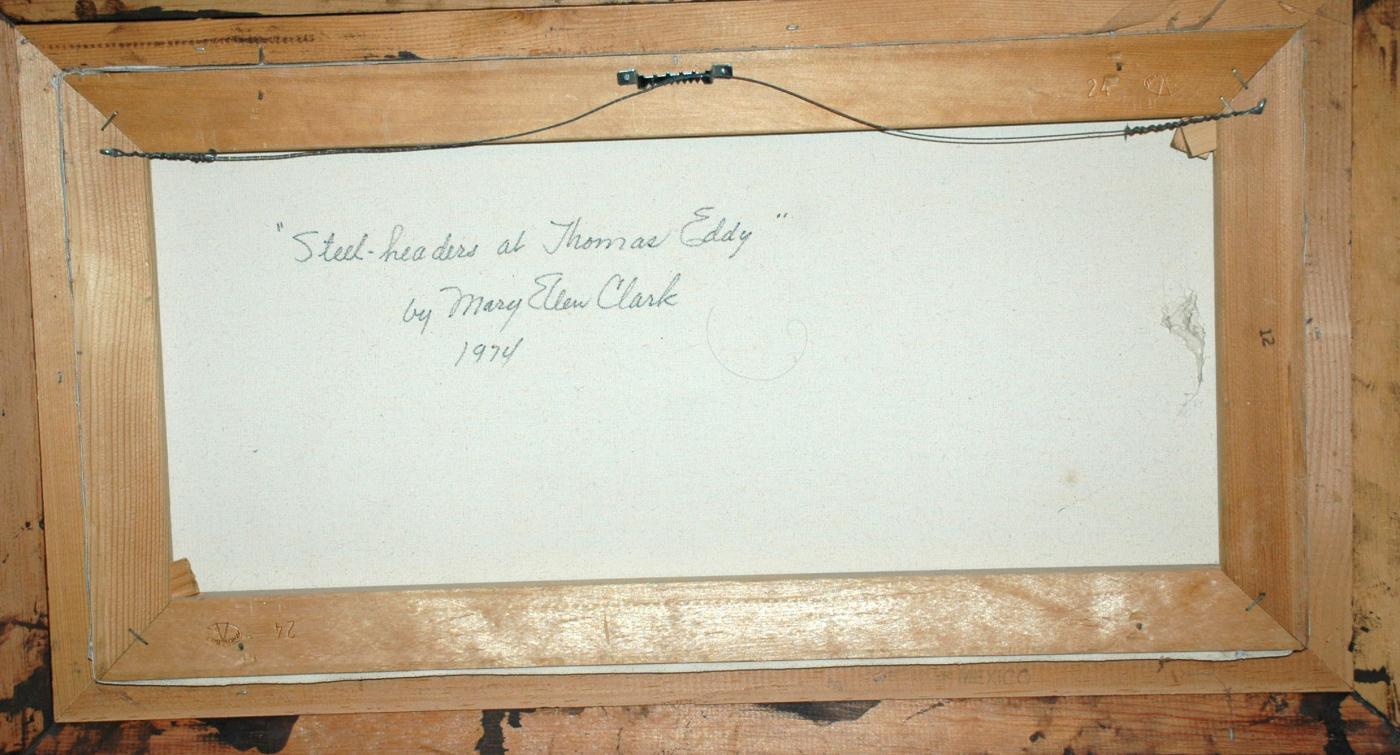 24
"Steel-headers at Thomas Eddy"
by Mary Ellen Clark
1974
12
24
MEXICO